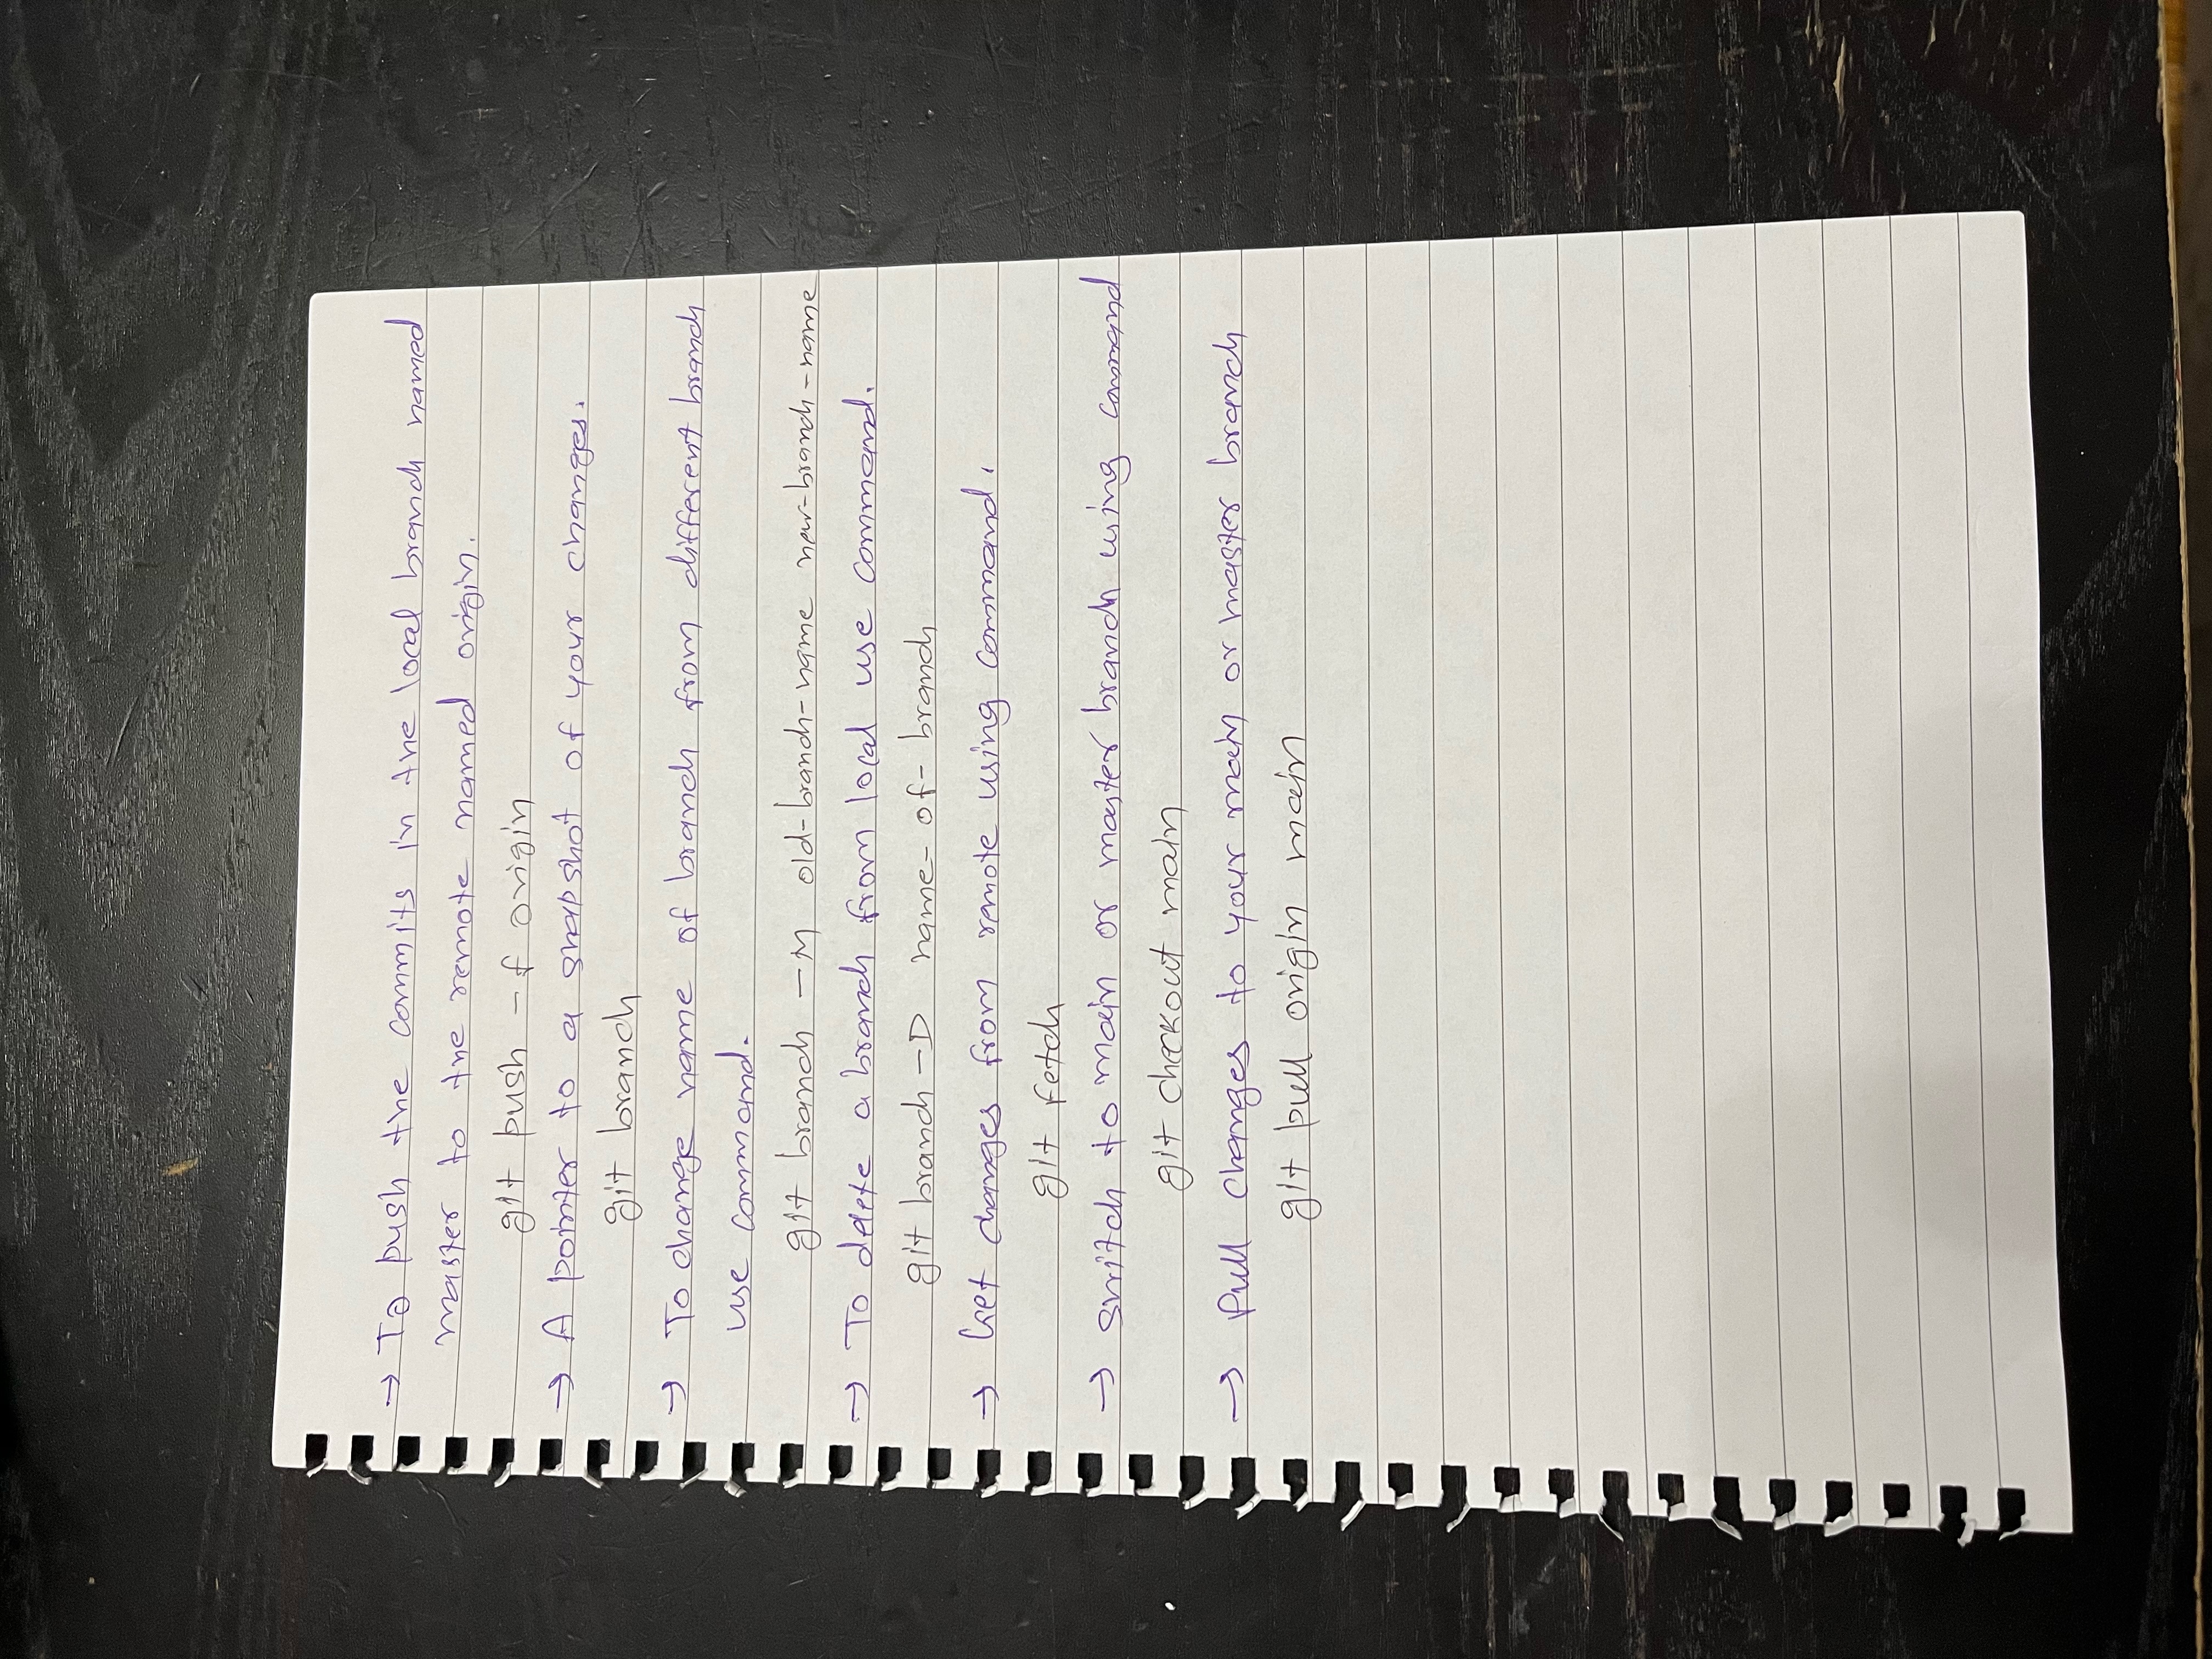 → To push the commits in the local branch named
master to the remote named origin.
git push -f origin
→ A pointer to a snapshot of your changes.
git branch
→ To change name of branch from different branch
use command.
git branch -M old-branch-name new-branch-name
→ To delete a branch from local use command.
git branch -D name-of-branch
→ Get changes from remote using command.
git fetch
→ switch to main or master branch using command
git checkout main
→ Pull changes to your main or master branch
git pull origin main